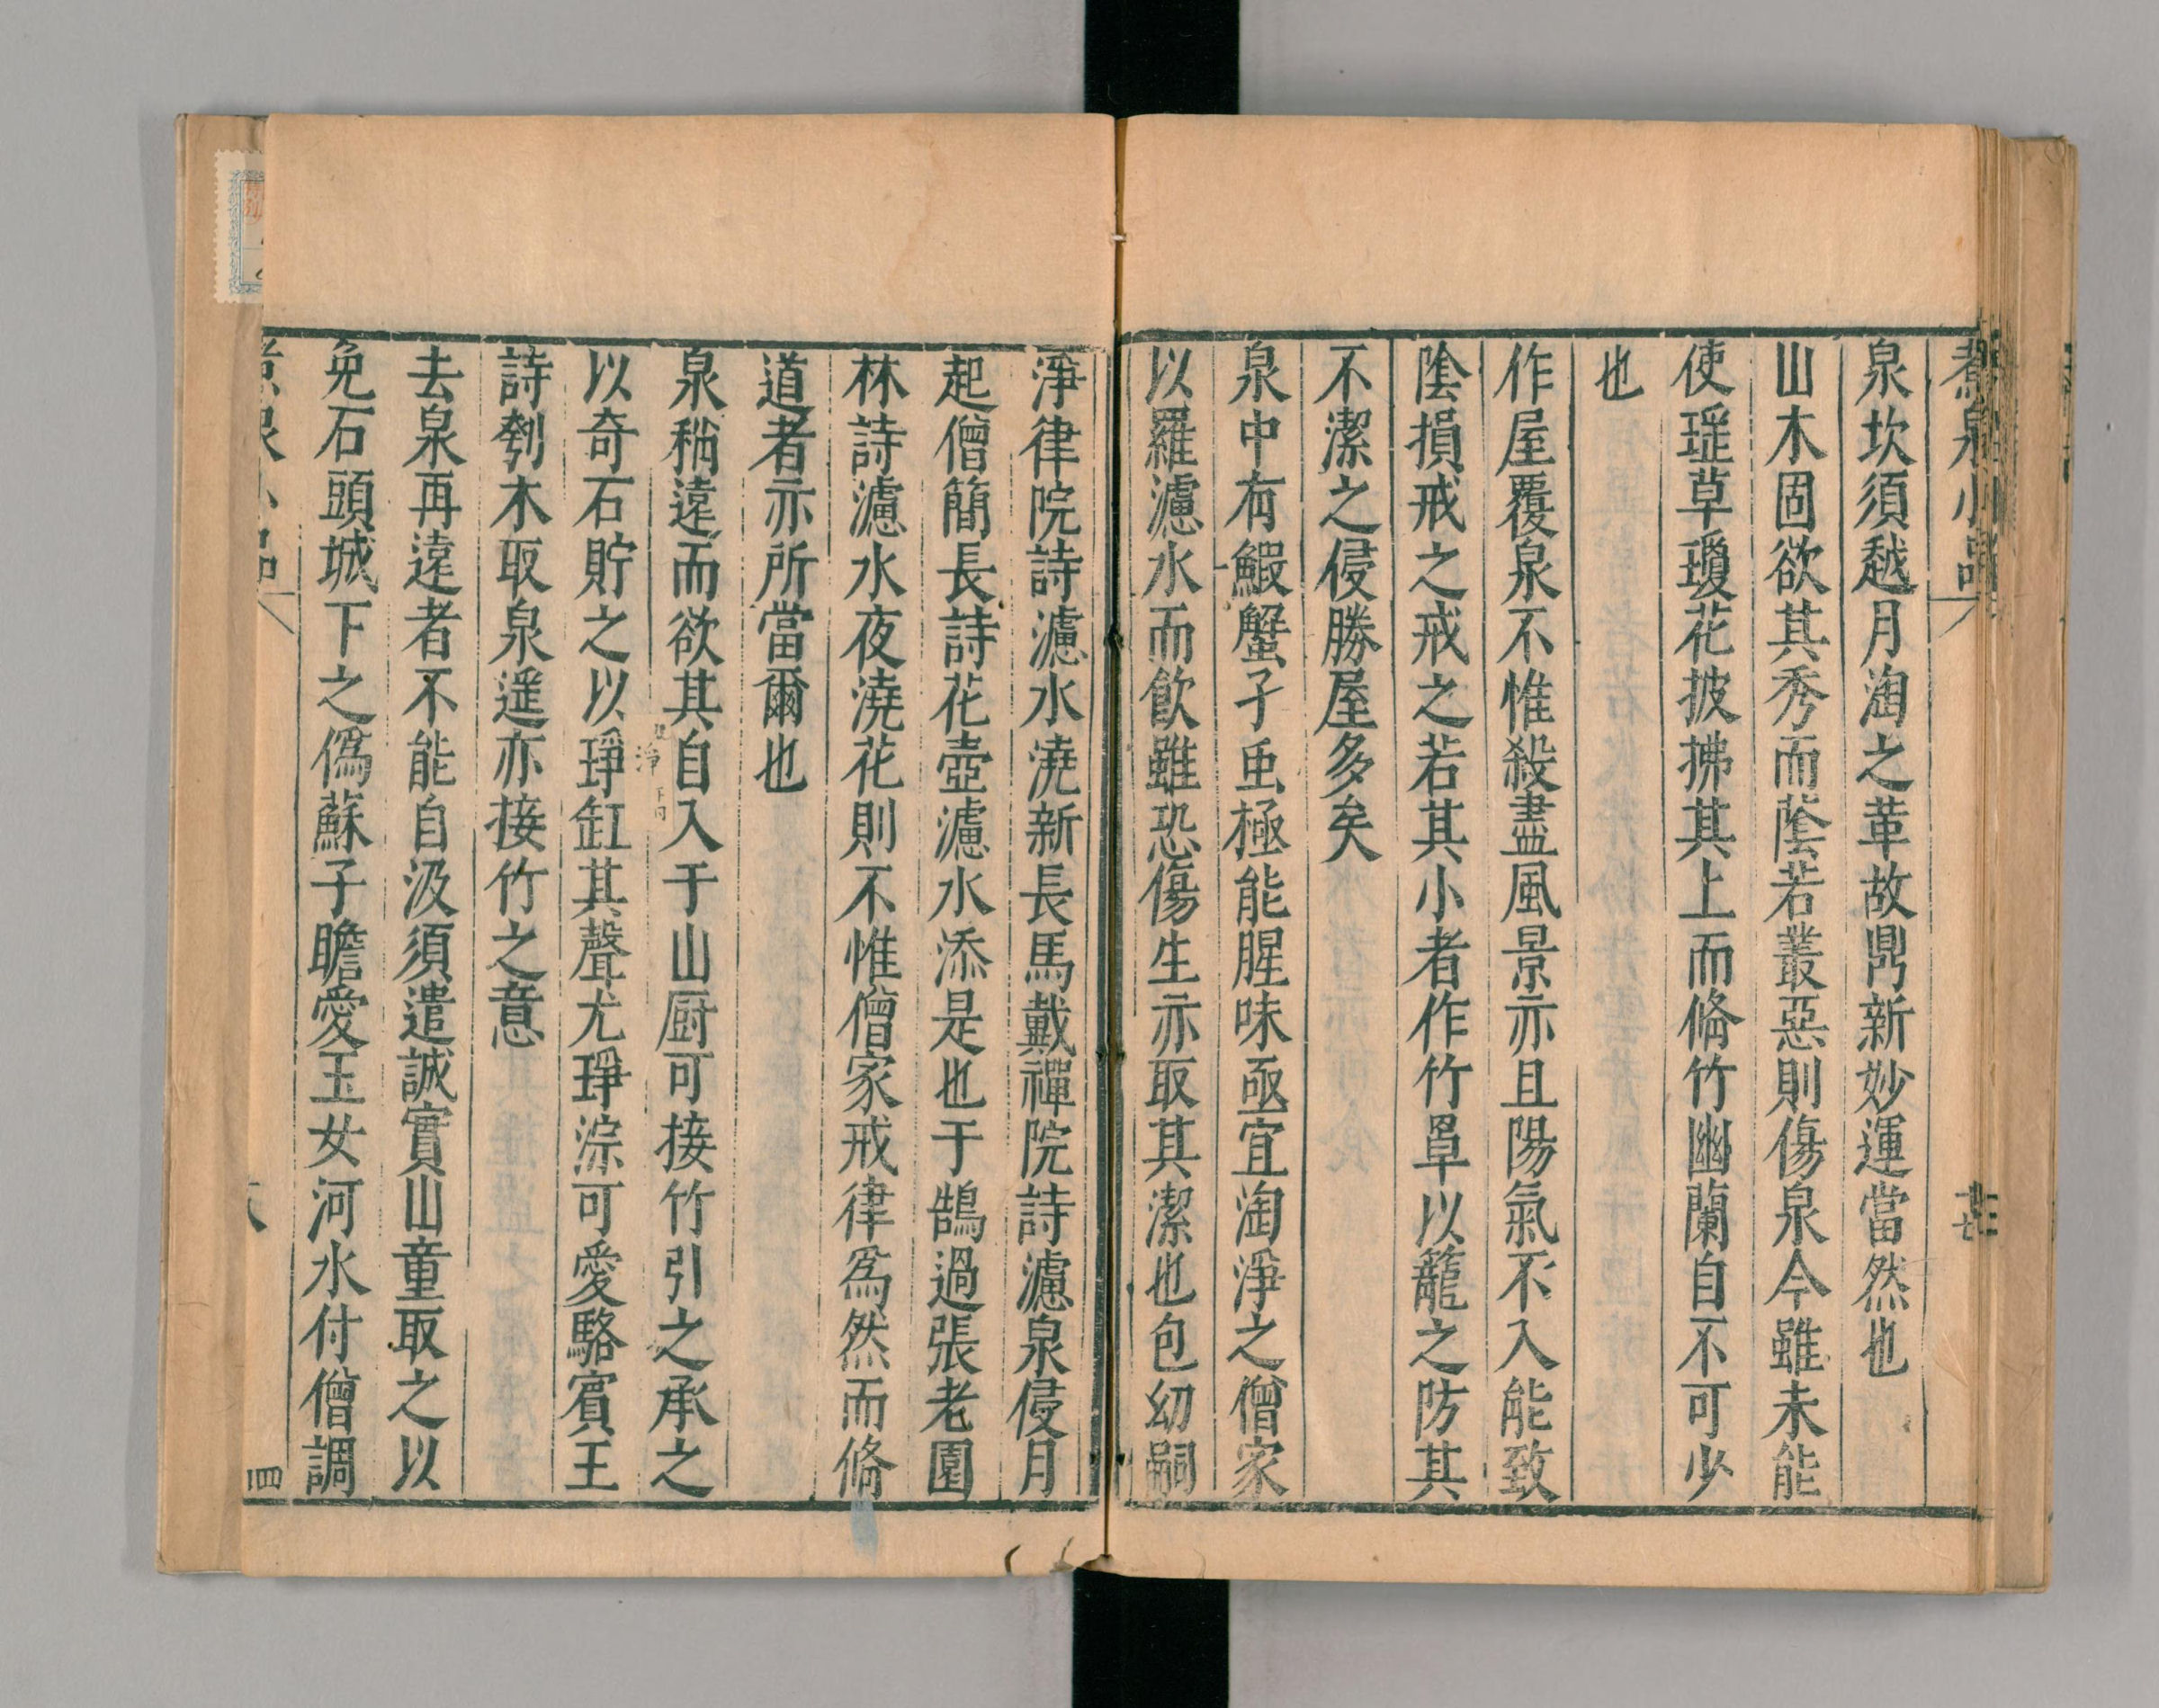 煮泉小品
泉坎須越月淘之革故鼎新妙運當然也
山木固欲其秀而蔭若叢惡則傷泉今雖未能
使瑶草瓊花披拂其上而脩竹幽蘭自不可少
也
作屋覆泉不惟殺盡風景亦且陽氣不入能致
陰損戒之戒之若其小者作竹罩以籠之防其
不潔之侵勝屋多矣
泉中有鰕蟹孑虫極能腥味亟宜淘淨之僧家
以羅濾水而飲雖恐傷生亦取其潔也包幼嗣
淨律院詩濾水澆新長馬戴禪院詩濾泉侵月
起僧簡長詩花壺濾水添是也于鵠過張老園
林詩濾水夜澆花則不惟僧家戒律爲然而脩
道者亦所當爾也
泉稍遠而欲其自入于山厨可接竹引之承之
以奇石貯之以琤缸其聲尤琤淙可愛駱賓王
詩刳木取泉遥亦接竹之意
去泉再遠者不能自汲須遣誠實山童取之以
免石頭城下之僞蘇子瞻愛玉女河水付僧調